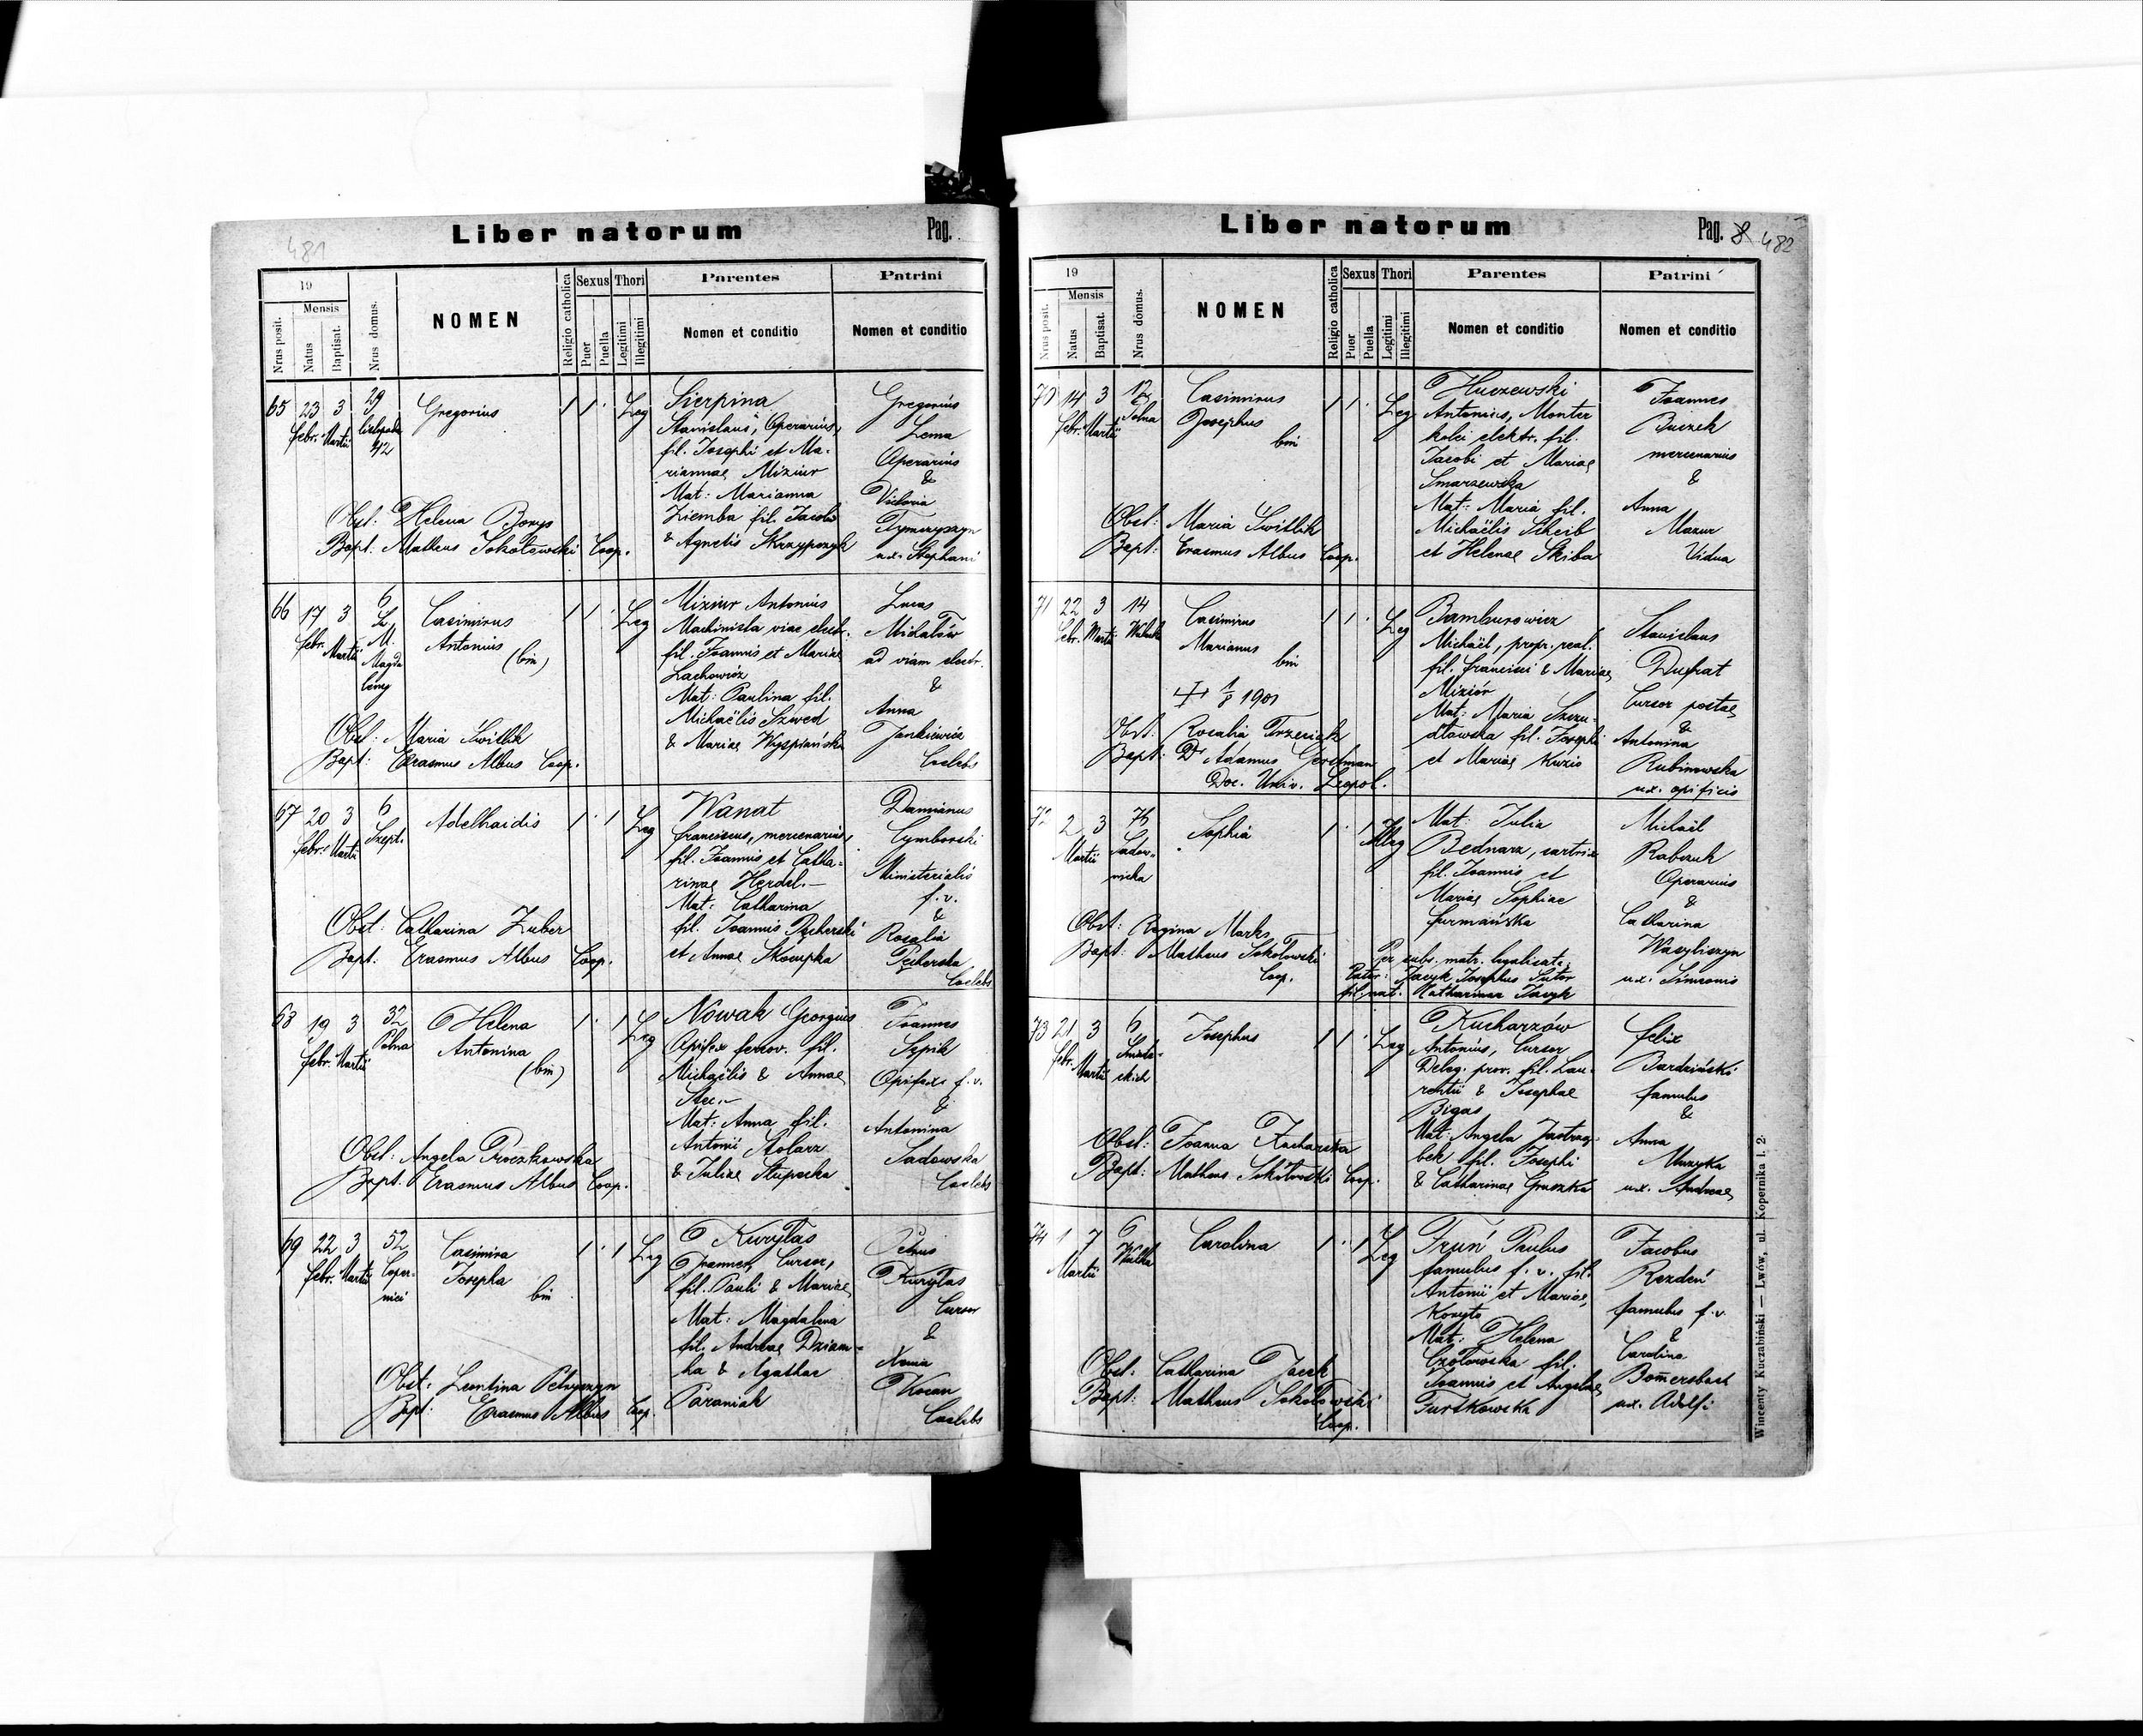 481
Liber natorum
Pag.
19
Mensis
Nrus posit.
Natus
Baptisat.
Nrus domus.
NOMEN
Religio catholica
Sexus
Puer
Puella
Thori
Legitimi
Illegitimi
Parentes
Nomen et conditio
Patrini
Nomen et conditio
65 23 3 29 Gregorius 1 1 Leg Sierpina Gregorius
Febr. Martii Listopada Stanislaus, Operarius, Lema
42 fil. Josephi et Ma- Operarius
riannae Miziur &
Mat: Marianna Victoria
Obst: Helena Borys Ziemba fil. Jacobi Tymczyszyn
Bapt: Matheus Sokołowski Coop. & Agnetis Skrzypczyk ux. Stephani
66 17 3 6 Casimirus 1 1 Leg Miziur Antonius Lucas
Febr. Martii M. Antonius (bin) Machinista viae electr. Michałów
Magda fil. Joannis et Mariae ad viam electr.
leny Lachowicz &
Mat: Paulina fil. Anna
Obst: Maria Świtlik Michaëlis Szwed Jankiewicz
Bapt: Erasmus Albus Coop. & Mariae Wyspiańska Coelebs
67 20 3 6 Adelhaidis 1 1 Leg Wanat Damianus
Febr. Martii Szept. Franciscus, mercenarius, Cymborski
fil. Joannis et Catha- Ministerialis
rinae Herdel.- f.v.
Mat: Catharina &
Obst: Catharina Zuber fil. Joannis Pycherski Rosalia
Bapt: Erasmus Albus Coop. et Annae Skowpka
Coelebs
68 19 3 32 Helena 1 1 Leg Nowak Georgius Joannes
Febr. Martii Polna Antonina Opifex ferrov. fil. Szpik
(bin) Michaëlis & Annae Opifex f.v.
&
Mat: Anna fil. Antonina
Obst: Angela Proczkowska Antonii Stolarz Sadowska
Bapt: Erasmus Albus Coop. & Juliae Słuposka Coelebs
69 22 3 52 Casimira 1 1 Leg Kuryłas Petrus
Febr. Martii Coper- Josepha Joannes, Cursor, Kuryłas
nici bin fil. Pauli & Mariae Cursor
Mat: Magdalena &
fil. Andreae Dziam- Xenia
Obst: Leontina Petryszyn ha & Agathae Kocan
Bapt: Erasmus Albus Coop. Paraniak Coelebs
Liber natorum
Pag. 8 482
19
Mensis
Nrus posit.
Natus
Baptisat.
Nrus domus.
NOMEN
Religio catholica
Sexus
Puer
Puella
Thori
Legitimi
Illegitimi
Parentes
Nomen et conditio
Patrini
Nomen et conditio
70 14 3 Casimirus 1 1 Leg. Huczewski Joannes
Febr. Martii Polna Josephus Antonius, Monter Buczek
bin kolei elektr. fil. mercenarius
Jacobi et Mariae &
Smarzewska Anna
Obst: Maria Świtlik Mat: Maria fil. Mazur
Bapt: Erasmus Albus Coop. Michaëlis Scheib Vidua
et Helenae Skiba
71 22 3 14 Casimirus 1 1 Leg Bamburowicz Stanislaus
Febr. Martii Marianus Michaël, propr. real. Dufrat
bin fil. Francisci & Mariae Cursor postae
1/8 1901 Miziór &
Obst: Rosalia Trzeciak Mat: Maria Szczu- Antonina
Bapt: Dr Adamus Gerstman dłowska fil. Josephi Rubinowska
Doc. Univ. Leopol. et Mariae Kuzio ux. opificis
72 2 3 76 Sophia 1 1 Illeg Mat: Julia Michaël
Martii Sadow- Bednarz, sartrix Rabczuk
nicka fil. Joannis et Operarius
Mariae Sophiae &
Obst: Regina Marks Furmańska Catharina
Bapt: Matheus Sokołowski Per subs. matr. legalisata, Wasyliszyn
Coop. Pater: Jacyk Josephus Sutor ux. Simeonis
fil. nat. Katharinae Jacyk
73 21 3 6 Josephus 1 1 Leg Kucharzów Felix
Febr. Martii Śniade- Antonius, Cursor Bardziński
ckich Deleg. prov. fil. Lau- famulus
rentii & Josephae &
Bigas Anna
Obst: Joanna Kucharska Mat: Angela Jastrzę- Muzyka
Bapt: Matheus Sokołowski Coop. bek fil. Josephi ux. Andreae
& Catharinae Gruszka
74 1 7 6 Carolina 1 1 Leg Truń Paulus Jacobus
Martii Wulka famulus f.v. fil. Rezdeń
Antonii et Mariae, famulus f.v.
Konyto &
Mat: Helena Carolina
Obst: Catharina Jacek Czołowska fil. Bomersbach
Bapt: Matheus Sokołowski Joannis et Angelae ux. Adolfi
Coop. Turtkowska
Wincenty Kuczabiński — Lwów, ul. Kopernika l. 2